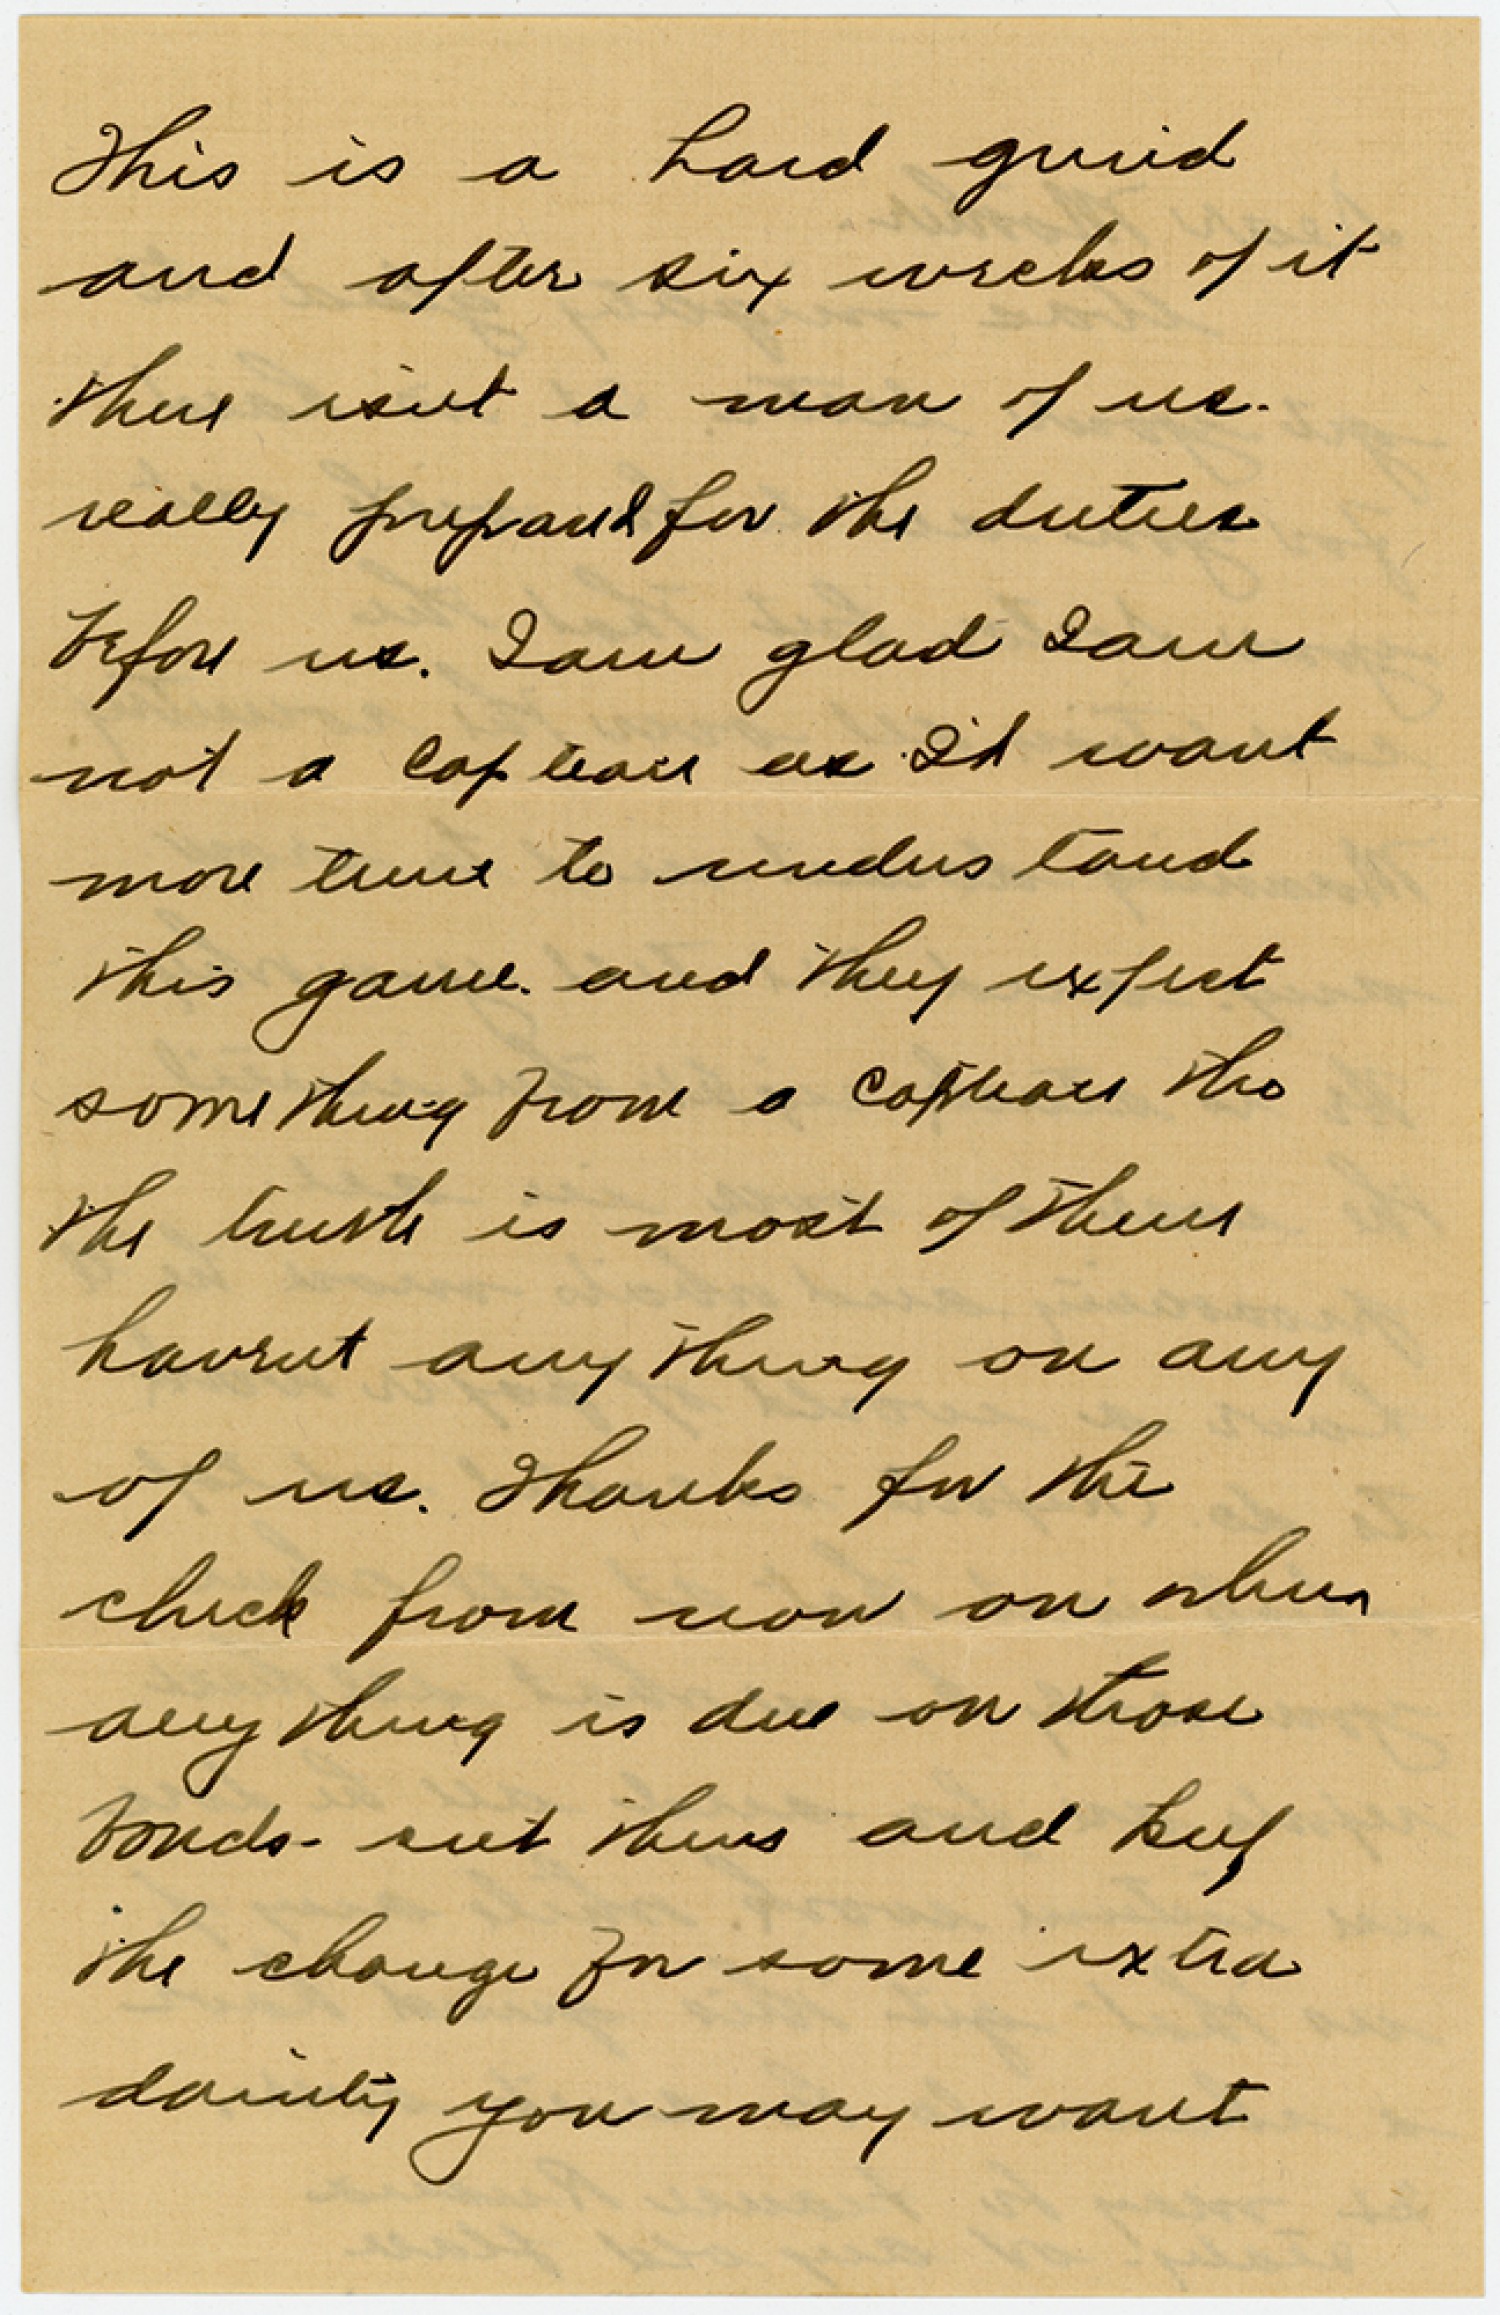 This is a hard grind
and after six weeks of it
there isnt a man of us
really prepared for the duties
before us. I am glad I am
not a Captain as I'd want
more time to understand
this game. and they expect
something from a Captain tho
the truth is most of them
havent anything on any
of us. Thanks for the
check from now on when
anything is due on those
bonds - cut them and keep
the change for some extra
dainty you may want